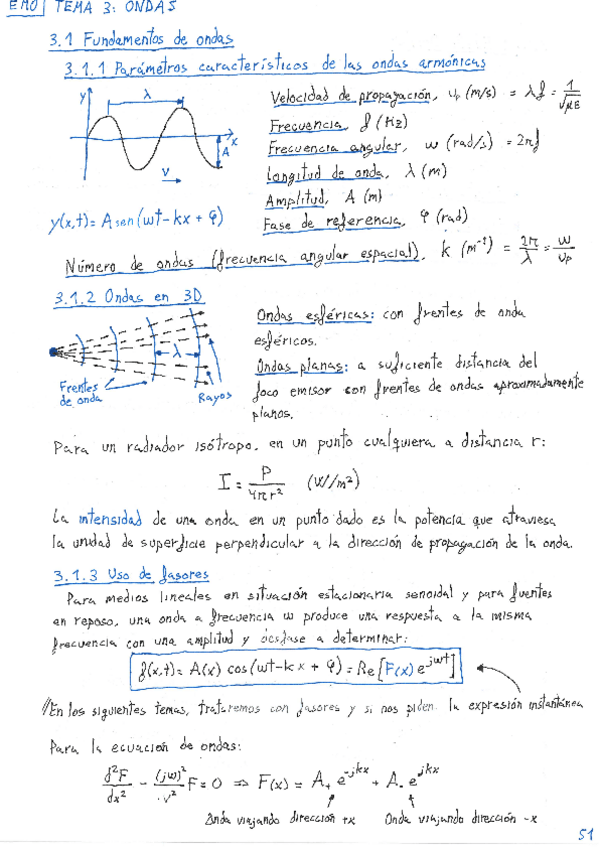 EMO | TEMA 3: ONDAS
3.1 Fundamentos de ondas
3.1.1 Parámetros característicos de las ondas armónicas
y
λ
x
A
v
Velocidad de propagación, υp (m/s) = λf = 1/√με
Frecuencia, f (Hz)
Frecuencia angular, w (rad/s) = 2πf
Longitud de onda, λ (m)
Amplitud, A (m)
y(x,t) = A sen(wt - kx + φ)
Fase de referencia, φ (rad)
Número de ondas (frecuencia angular espacial), k (m⁻¹) = 2π/λ = w/υp
3.1.2 Ondas en 3D
λ
Frentes de onda
Rayos
Ondas esféricas: con frentes de onda
esféricos.
Ondas planas: a suficiente distancia del
foco emisor con frentes de ondas aproximadamente
planos.
Para un radiador isótropo, en un punto cualquiera a distancia r:
I = P/4πr² (W/m²)
La intensidad de una onda en un punto dado es la potencia que atraviesa
la unidad de superficie perpendicular a la dirección de propagación de la onda.
3.1.3 Uso de fasores
Para medios lineales en situación estacionaria senoidal y para fuentes
en reposo, una onda a frecuencia w produce una respuesta a la misma
frecuencia con una amplitud y desfase a determinar:
f(x,t) = A(x) cos(wt - kx + φ) = Re[F(x) e^jwt]
//En los siguientes temas, trataremos con fasores y si nos piden la expresión instantánea
Para la ecuación de ondas:
d²F/dx² - (jw)²/v² F = 0 ⇒ F(x) = A₊ e^-jkx + A₋ e^jkx
Onda viajando dirección +x Onda viajando dirección -x
51